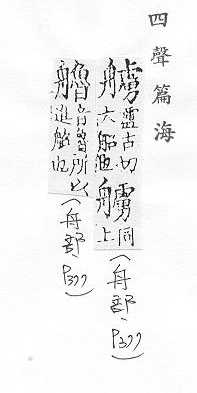 四聲篇海
艣盧古切大船也同上(舟部、P377)
艪音魯所以進船也(舟部、P377)